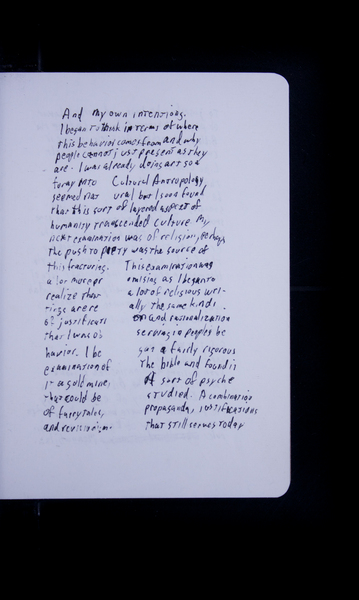 And my own intentions.
I began to think in terms of where
this behavior comes from and why
people cannot just present as they
are. I was already doing art so a
foray into Cultural Anthropology
seemed nat ural but I soon found
that this sort of layered aspect of
humanity transcended culture. My
next examination was of religion, perhaps
the push to piety was the source of
this fracturing. This examination was
a lot more pr omising as I began to
realize that a lot of religious wri-
tings are re ally the same kinds
of justificati on and rationalization
that I was ob serving in peoples be
havior. I be gan a fairly rigorous
examination of the bible and found it
a gold mine, of sort of psyche
that could be studied. A combination
of fairy tales, propaganda, justifications
and revisionism that still serves today